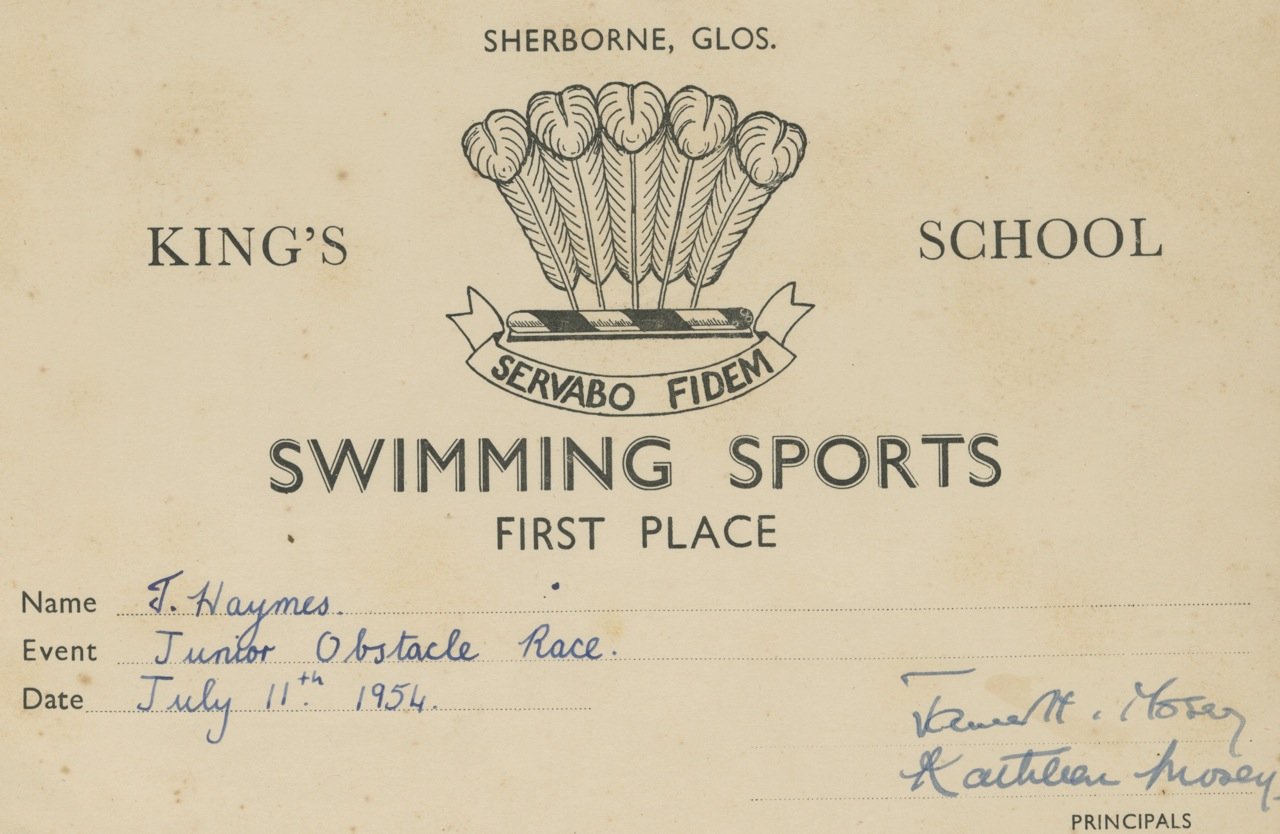 SHERBORNE, GLOS.
KING'S SCHOOL
SERVABO FIDEM
SWIMMING SPORTS
FIRST PLACE
Name J. Haymes.
Event Junior Obstacle Race.
Date July 11th. 1954.
H. Mosey
Kathleen Mosey
PRINCIPALS